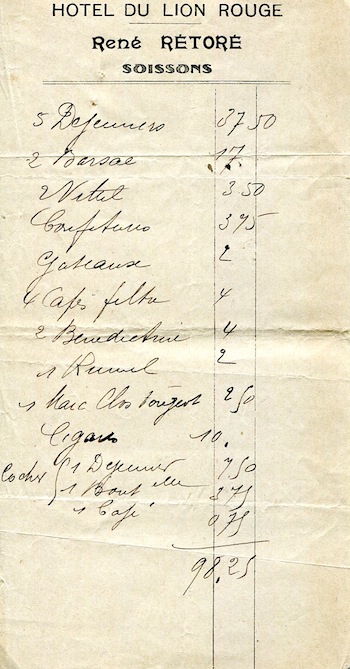 HOTEL DU LION ROUGE
René RÉTORÉ
SOISSONS
5 Dejeuners 37 50
2 Barsac 17.
2 Vittel 3 50
Confitures 3 75
Gateaux 2
4 Cafés filtre 4
2 Bénédictine 4
1 Kummel 2
1 Marc Clos Vougeot 2 50
Cigares 10.
Cocher { 1 Dejeuner 7 50
1 Bouteille 3 75
1 Café 0 75
98.25